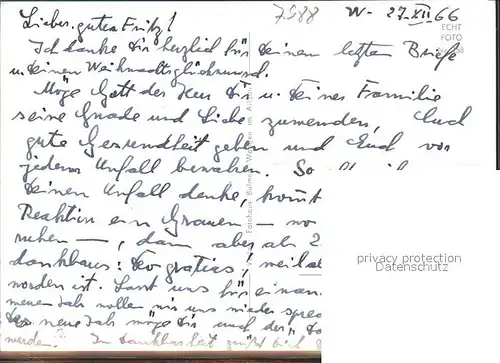 7588
W- 27.XII 66
ECHT
FOTO
Lieber, guter Fritz!
Ich danke Dir herzlich für Deinen letzten Brief
u. Deinen Weihnachtsglückwunsch.
Möge Gott der Herr Dir u. Deiner Familie
seine Gnade und Liebe zuwenden, Euch
gute Gesundheit geben und Euch vor
jedem Unfall bewahren. So
Deinen Unfall denke, kommt
Reaktion ein Grauen
ruhen —, dann aber als
dankbares: Deo gratias, weil
worden ist. Lasst uns für einan
neuen Jahr wollen wir uns wieder
Das neue Jahr möge Dir auch der
werden! In Dankbarkeit grüßt Dich
privacy protection
Datenschutz